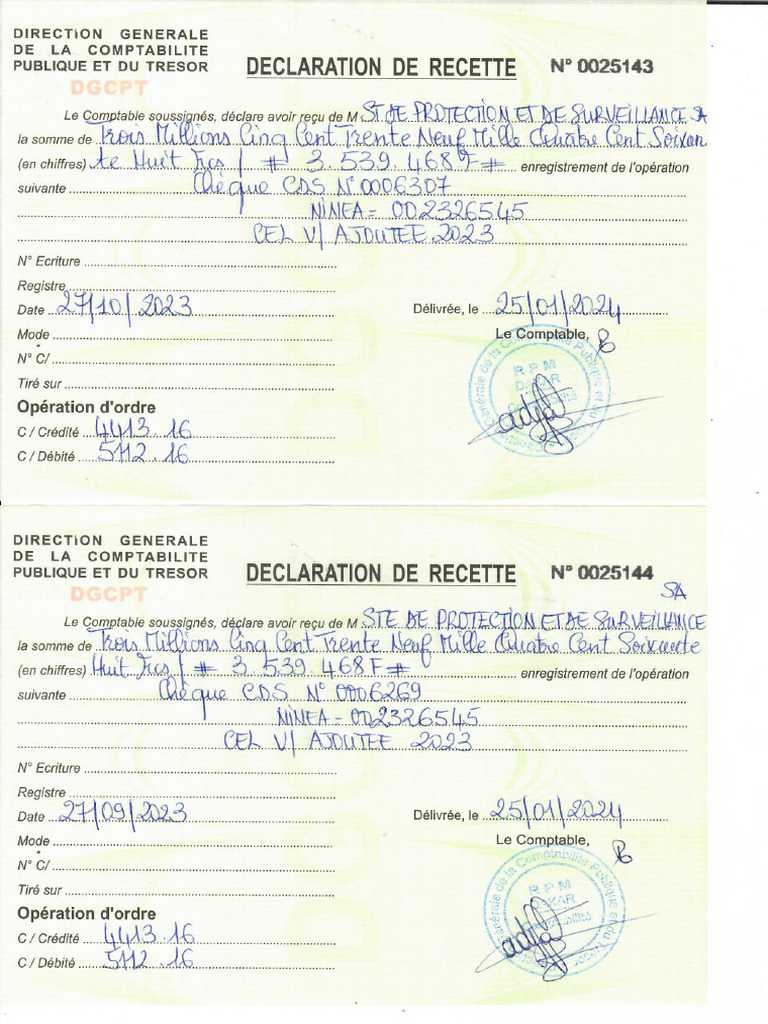 DIRECTION GENERALE
DE LA COMPTABILITE
PUBLIQUE ET DU TRESOR
DGCPT
DECLARATION DE RECETTE
N° 0025143
Le Comptable soussignés, déclare avoir reçu de M STE DE PROTECTION ET DE SURVEILLANCE SA
la somme de Trois Millions Cinq Cent Trente Neuf Mille Quatre Cent Soixan
(en chiffres) te Huit Frcs / # 3.539.468F # enregistrement de l'opération
suivante Chèque CDS N°0006307
NINEA = 002326545
CEL V/ AJOUTEE 2023
N° Ecriture
Registre
Date 27/10/2023
Délivrée, le 25/01/2024
Mode
Le Comptable,
N° C/
Tiré sur
RPM
DAKAR
Opération d'ordre
C / Crédité 4413.16
C / Débité 5112.16
DIRECTION GENERALE
DE LA COMPTABILITE
PUBLIQUE ET DU TRESOR
DGCPT
DECLARATION DE RECETTE
N° 0025144
SA
Le Comptable soussignés, déclare avoir reçu de M STE DE PROTECTION ET DE SURVEILLANCE
la somme de Trois Millions Cinq Cent Trente Neuf Mille Quatre Cent Soixante
(en chiffres) Huit Frcs / # 3.539.468F # enregistrement de l'opération
suivante Chèque CDS N° 0006269
NINEA = 002326545
CEL V/ AJOUTEE 2023
N° Ecriture
Registre
Date 27/09/2023
Délivrée, le 25/01/2024
Mode
Le Comptable,
N° C/
Tiré sur
RPM
DAKAR
Opération d'ordre
C / Crédité 4413.16
C / Débité 5112.16